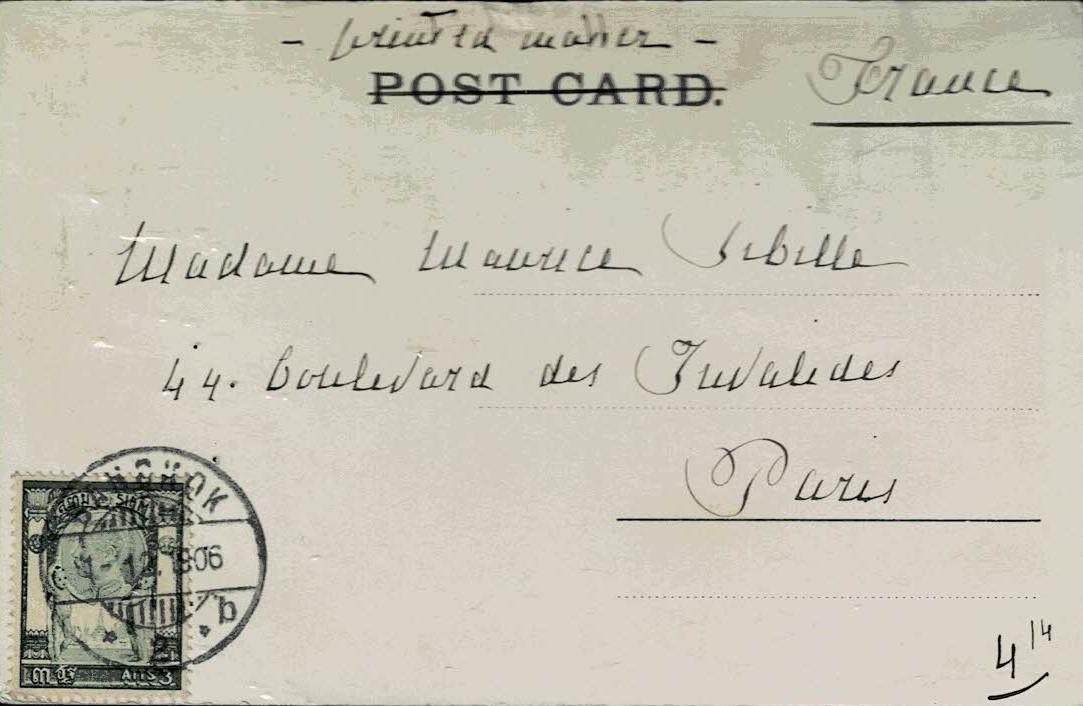 - printed matter -
POST CARD.
France
Madame Maurice Sibille
44. boulevard des Invalides
Paris
BANGKOK
1906
SIAM
ATTS 3
4 14